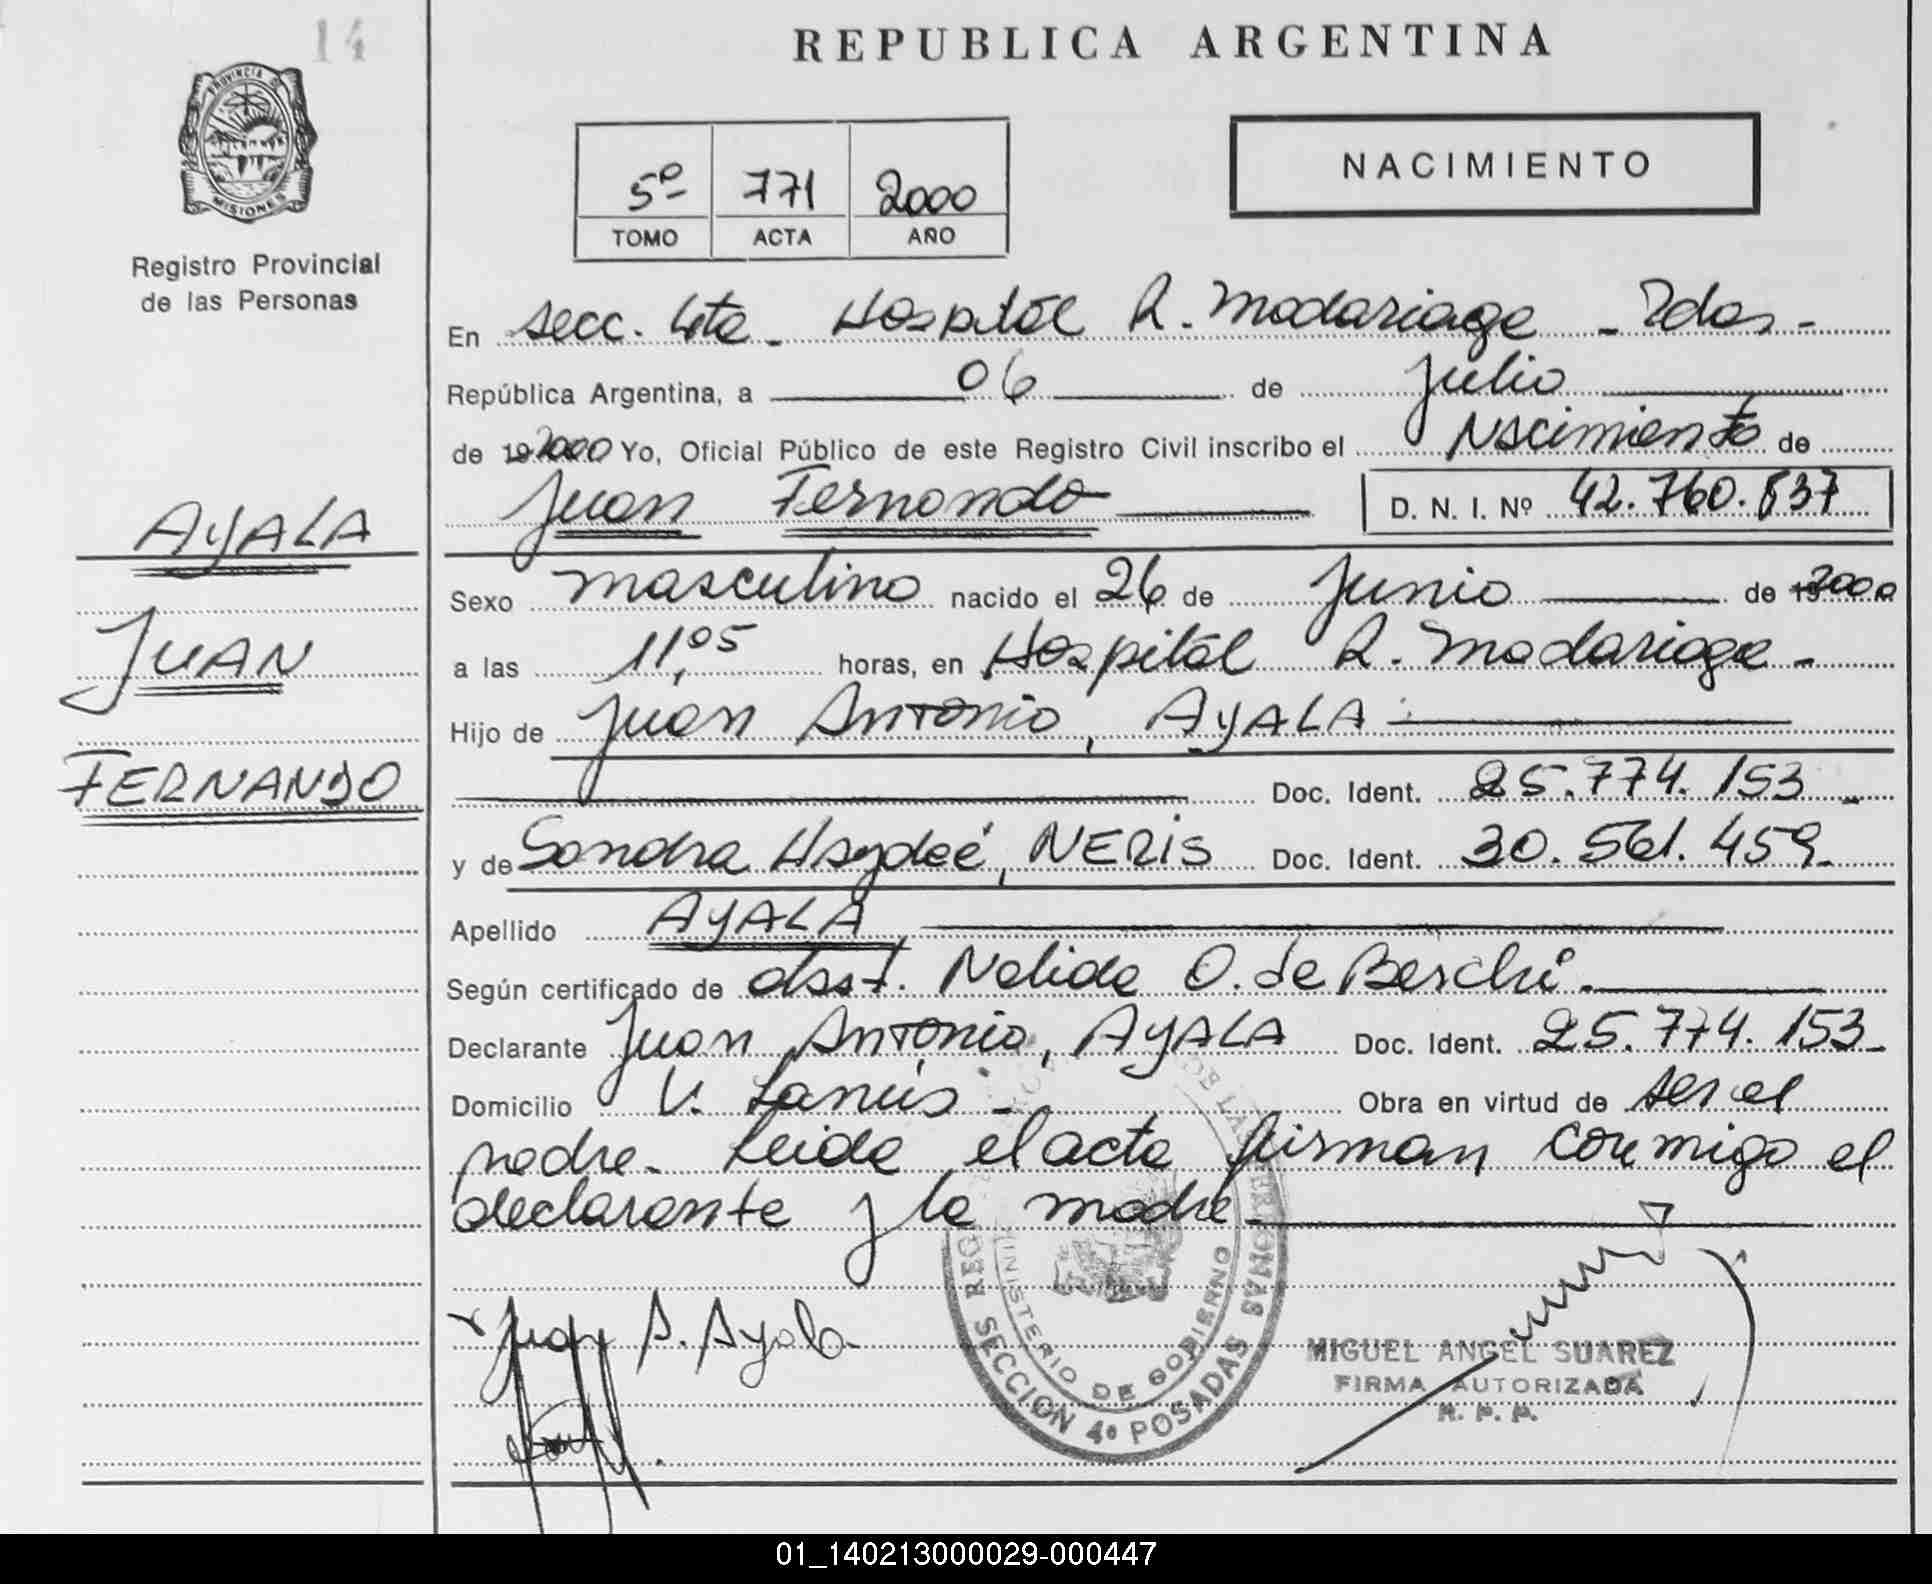 14
REPUBLICA ARGENTINA
PROVINCIA D
MISIONES
Registro Provincial
de las Personas
5º 771 2000
TOMO ACTA AÑO
NACIMIENTO
En secc. 4ta. Hospital R. Madariaga - Pdas -
República Argentina, a 06 de Julio
de 192000 Yo, Oficial Público de este Registro Civil inscribo el Nacimiento de
Juan Fernando D. N. I. Nº 42.760.837
AYALA
JUAN
FERNANDO
Sexo masculino nacido el 26 de Junio de 192000
a las 11,05 horas, en Hospital R. Madariaga -
Hijo de Juan Antonio, AYALA
Doc. Ident. 25.774.153 -
y de Sandra Haydeé, NERIS Doc. Ident. 30.561.459
Apellido AYALA
Según certificado de obst. Nelida O. de Berchi.
Declarante Juan Antonio, AYALA Doc. Ident. 25.774.153 -
Domicilio V. Lanús - Obra en virtud de ser el
padre. Leida el acta firman conmigo el
declarante y la madre.
Juan A. Ayala
MINISTERIO DE GOBIERNO
SECCION 4º POSADAS
MIGUEL ANGEL SUAREZ
FIRMA AUTORIZADA
R. P. P.
01_140213000029-000447